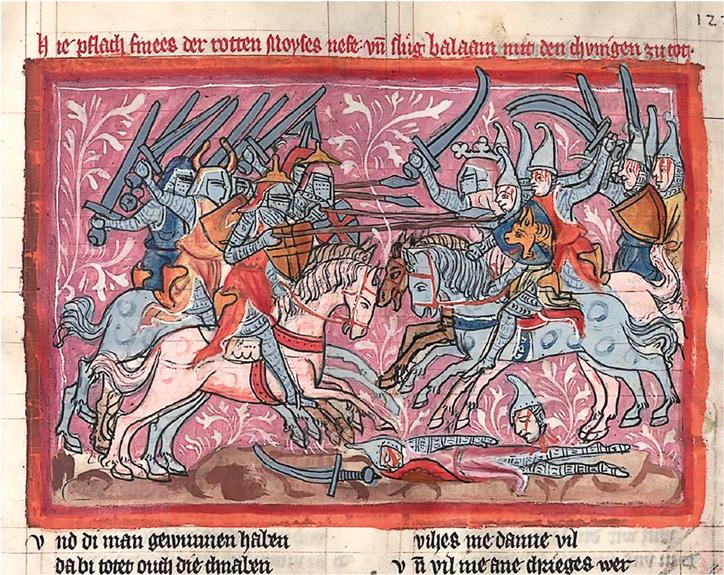 12
Hie pflach finees der rotten Moyses nefe· vñ slůg balaam mit den chunigen zu tot·
Vnd di man gewunnen haben
da bi totet ouch die chnaben
vihes me danne vil
Vñ vil me ane chrieges wer